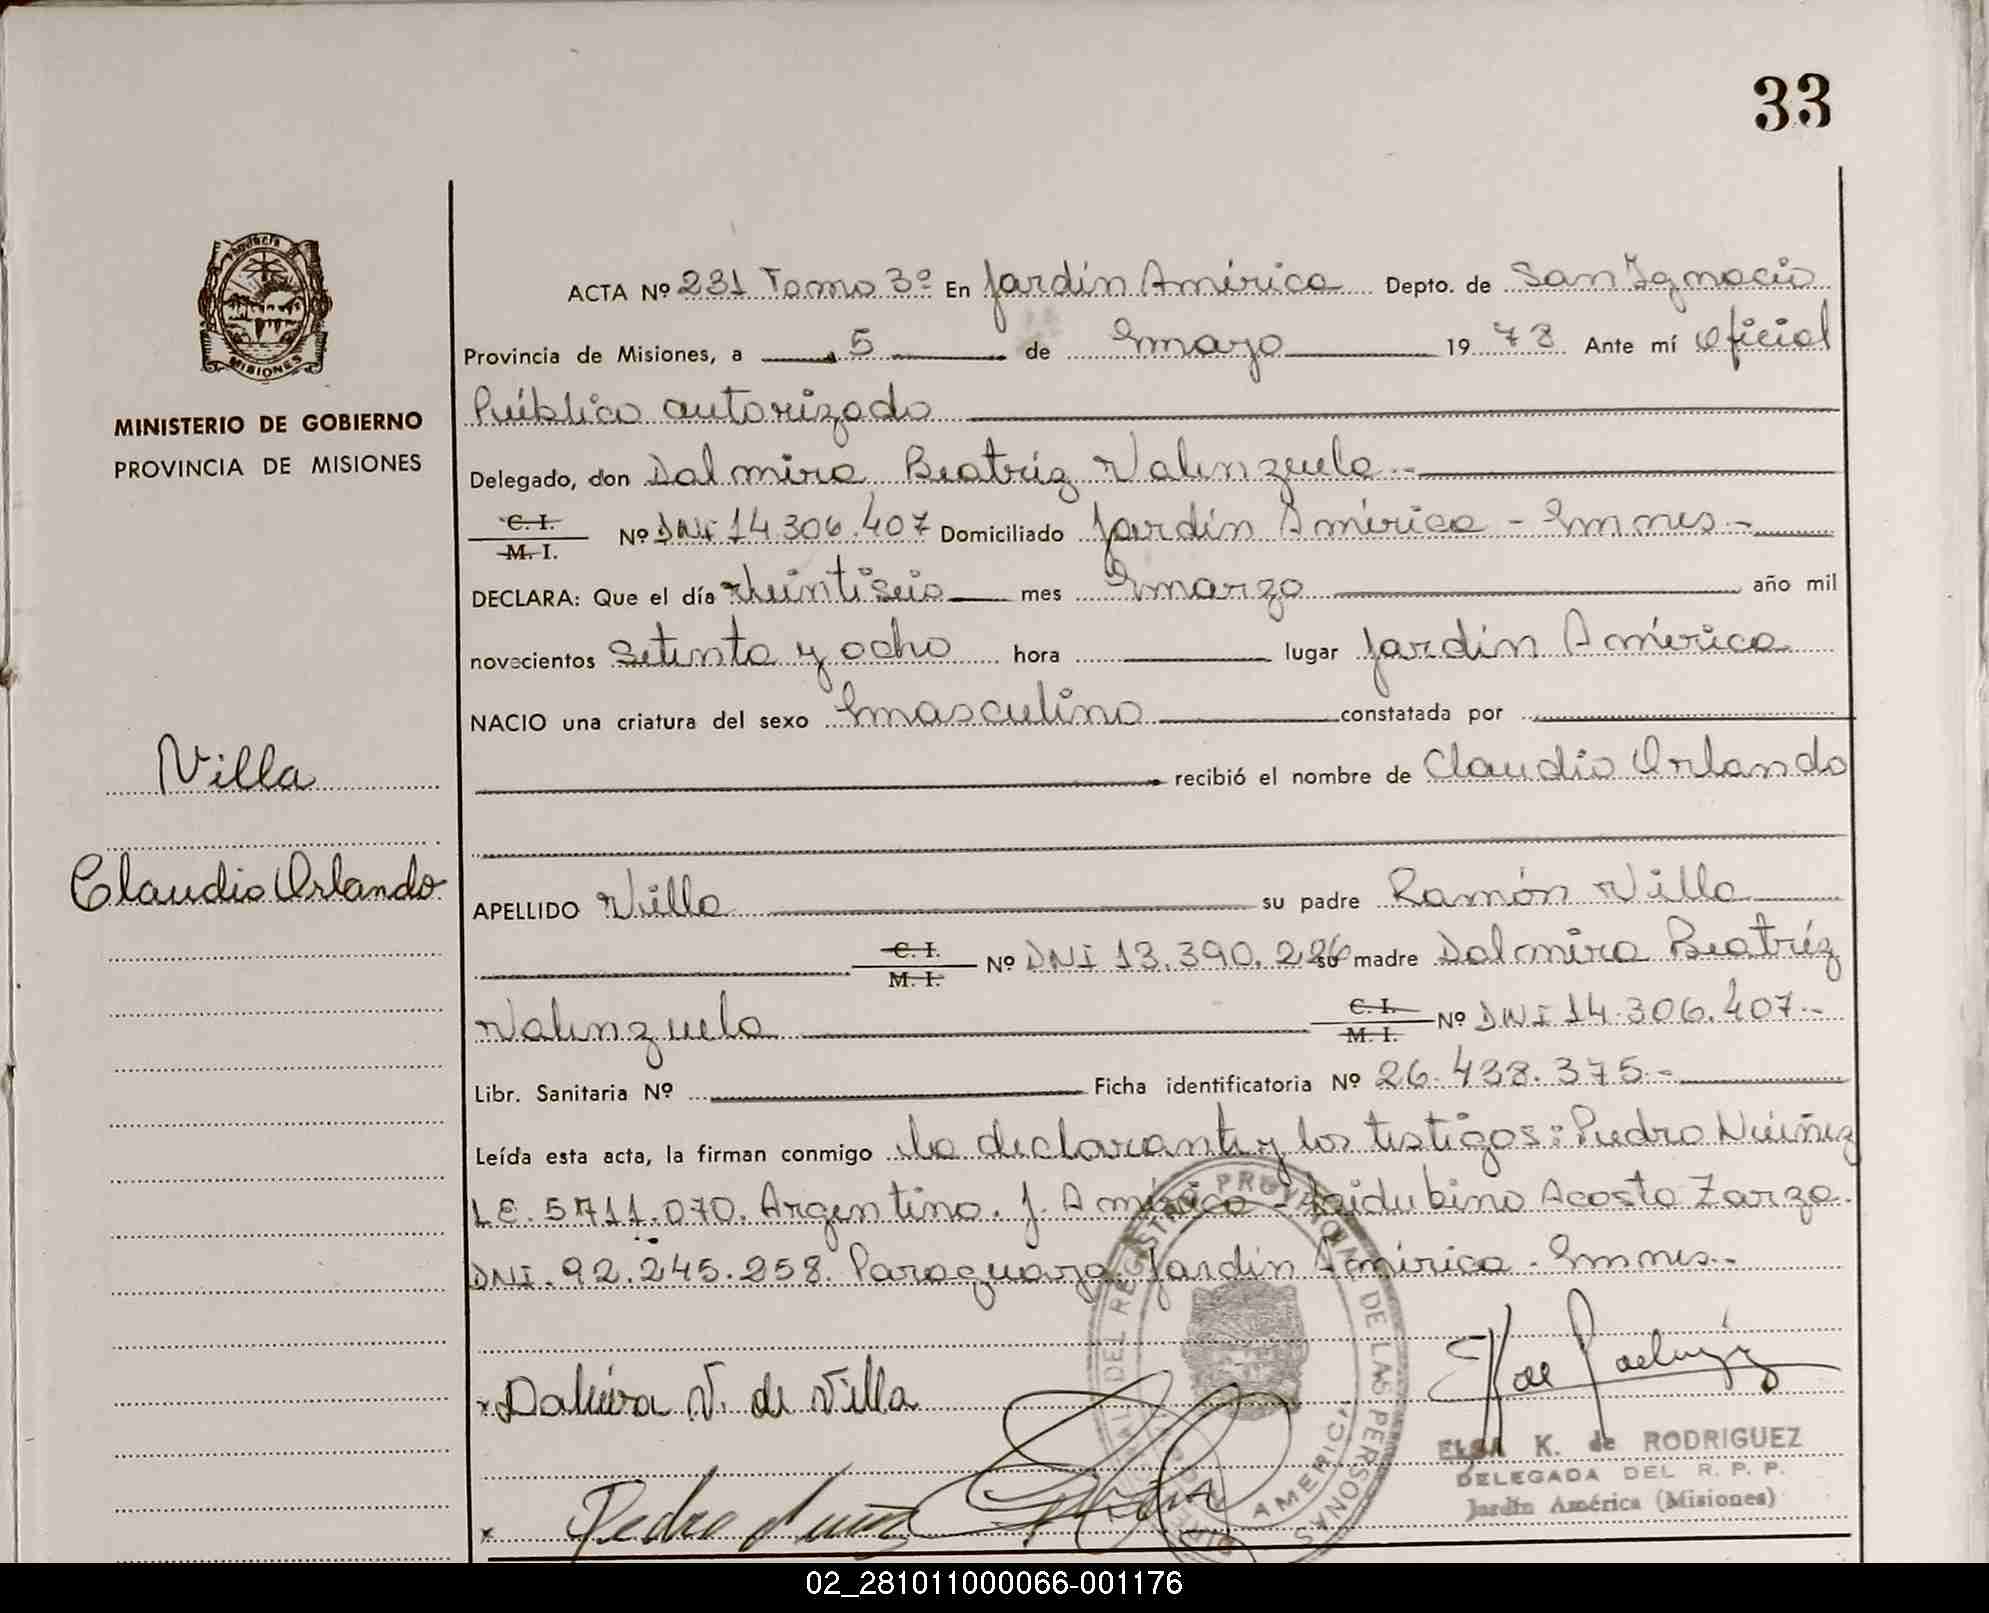 33
Provincia
MISIONES
MINISTERIO DE GOBIERNO
PROVINCIA DE MISIONES
Villa
Claudio Orlando
ACTA Nº 231 Tomo 3º En Jardín América Depto. de San Ignacio
Provincia de Misiones, a 5 de mayo 19 78 Ante mí Oficial
Público autorizado
Delegado, don Dalmira Beatríz Valenzuela.-
C. I.
M. I. Nº DNI 14.306.407 Domiciliado Jardín América - Mnes.-
DECLARA: Que el día Veintiseis mes marzo año mil
novecientos Setenta y ocho hora lugar Jardín América
NACIO una criatura del sexo masculino constatada por
recibió el nombre de Claudio Orlando
APELLIDO Villa su padre Ramón Villa
C. I.
M. I. Nº DNI 13.390.226 su madre Dalmira Beatríz
Valenzuela C. I.
M. I. Nº DNI 14.306.407.-
Libr. Sanitaria Nº Ficha identificatoria Nº 26.438.375.-
Leída esta acta, la firman conmigo la declarante y los testigos: Pedro Núñez
LE. 5711.070. Argentino. J. América - Acosta Zarza.
DNI. 92.245.258. Paraguaya. Jardín América - Mnes.-
Dalmira V. de Villa
ELSA K. de RODRIGUEZ
DELEGADA DEL R. P. P.
Jardín América (Misiones)
Pedro Nuñez
PROVINCIAL DE LAS PERSONAS
AMERICA
02_281011000066-001176